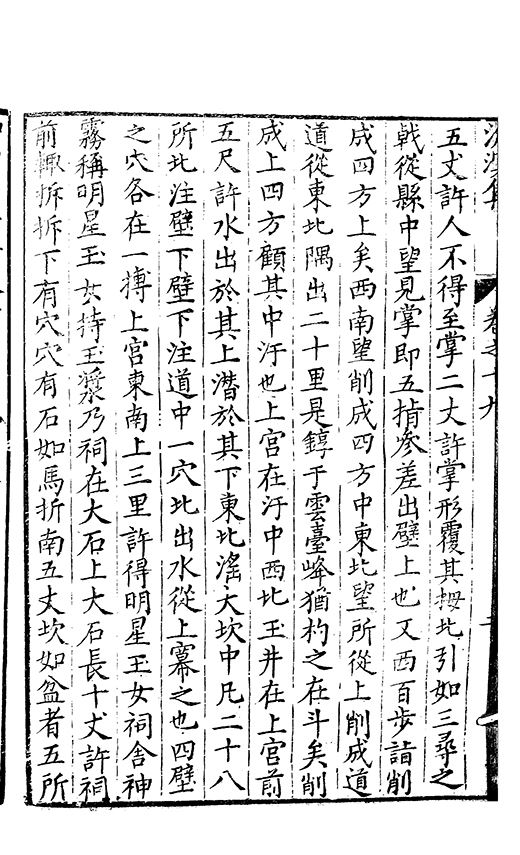 滄溟集 卷之十九
五丈許人不得至掌二丈許掌形覆其拇北引如三尋之
戟從縣中望見掌即五指參差出壁上也又西百步詣削
成四方上矣西南望削成四方中東北望所從上削成道
道從東北隅出二十里是錞于雲臺峰猶杓之在斗矣削
成上四方顧其中汙也上宮在汙中西北玉井在上宮前
五尺許水出於其上潛於其下東北淫大坎中凡二十八
所北注壁下壁下注道中一穴北出水從上冪之也四壁
之穴各在一搏上宮東南上三里許得明星玉女祠舍神
霧稱明星玉女持玉漿乃祠在大石上大石長十丈許祠
前輙拆拆下有穴穴有石如馬折南五丈坎如盆者五所